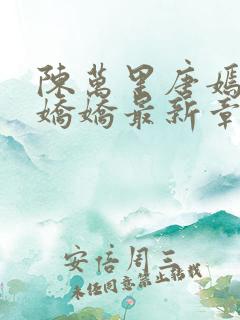 陳萬里唐嫣
嬌嬌最新章
安倍周三
未经同意禁止转载